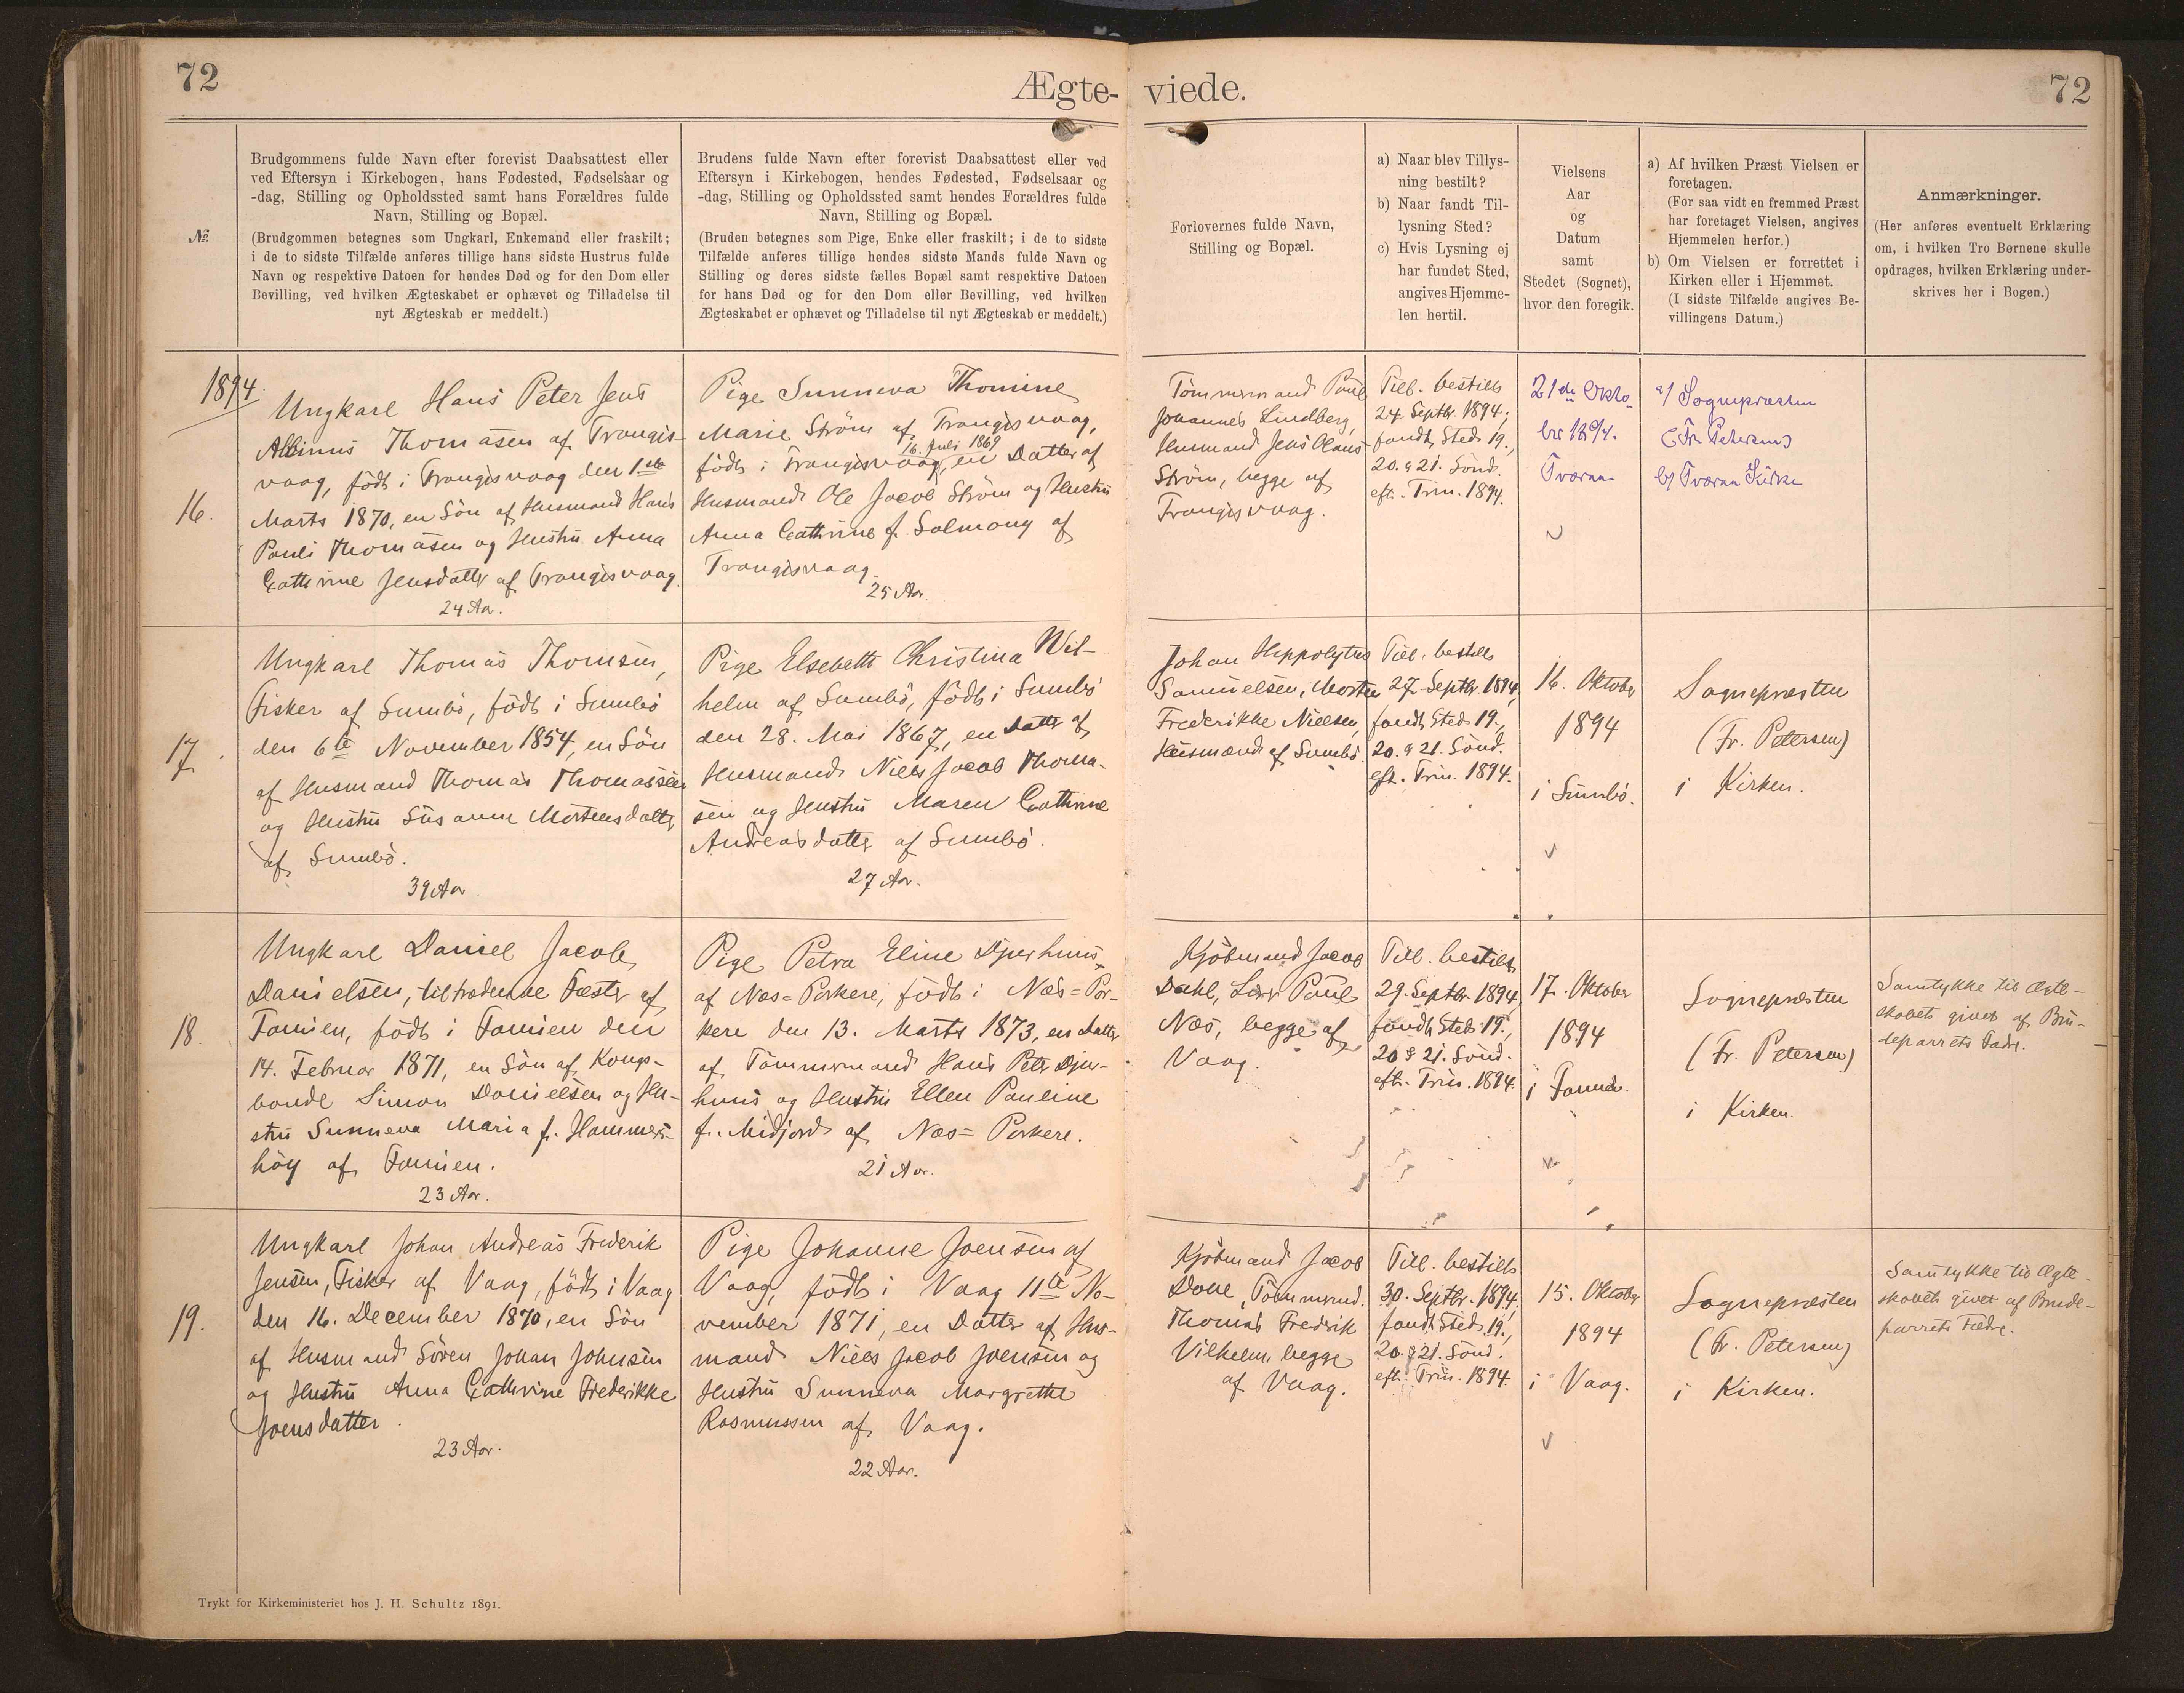 72
Ægte-
viede.
72
№
Brudgommens fulde Navn efter forevist Daabsattest eller
ved Eftersyn i Kirkebogen, hans Fødested, Fødselsaar og
-dag, Stilling og Opholdssted samt hans Forældres fulde
Navn, Stilling og Bopæl.
(Brudgommen betegnes som Ungkarl, Enkemand eller fraskilt;
i de to sidste Tilfælde anføres tillige hans sidste Hustrus fulde
Navn og respektive Datoen for hendes Død og for den Dom eller
Bevilling, ved hvilken Ægteskabet er ophævet og Tilladelse til
nyt Ægteskab er meddelt.)
Brudens fulde Navn efter forevist Daabsattest eller ved
Eftersyn i Kirkebogen, hendes Fødested, Fødselsaar og
-dag, Stilling og Opholdssted samt hendes Forældres fulde
Navn, Stilling og Bopæl.
(Bruden betegnes som Pige, Enke eller fraskilt; i de to sidste
Tilfælde anføres tillige hendes sidste Mands fulde Navn og
Stilling og deres sidste fælles Bopæl samt respektive Datoen
for hans Død og for den Dom eller Bevilling, ved hvilken
Ægteskabet er ophævet og Tilladelse til nyt Ægteskab er meddelt.)
Forlovernes fulde Navn,
Stilling og Bopæl.
a) Naar blev Tillys-
ning bestilt?
b) Naar fandt Til-
lysning Sted?
c) Hvis Lysning ej
har fundet Sted,
angives Hjemme-
len hertil.
Vielsens
Aar
og
Datum
samt
Stedet (Sognet),
hvor den foregik.
a) Af hvilken Præst Vielsen er
foretagen.
(For saa vidt en fremmed Præst
har foretaget Vielsen, angives
Hjemmelen herfor.)
b) Om Vielsen er forrettet i
Kirken eller i Hjemmet.
(I sidste Tilfælde angives Be-
villingens Datum.)
Anmærkninger.
(Her anføres eventuelt Erklæring
om, i hvilken Tro Børnene skulle
opdrages, hvilken Erklæring under-
skrives her i Bogen.)
1894.
16.
Ungkarl Hans Peter Jens
Albinus Thomasen af Trangis-
vaag, födt i Trangisvaag den 1ste
Marts 1870, en Sön af Husmand Hans
Pauli Thomasen og Hustru Anna
Cathrine Jensdatter af Trangisvaag.
24 Aar.
Pige Sunneva Thomine
Marie Ström af Trangisvaag,
16. Juli 1869
födt i Trangisvaag, en Datter af
Husmand Ole Jacob Ström og Hustru
Anna Cathrine f. Salmony af
Trangisvaag.
25 Aar.
Tömmermand Paul
Johannes Lindberg,
Husmand Jens Olaus
Ström, begge af
Trangisvaag.
Till. bestilt
24 Septbr. 1894;
fandt Sted 19.,
20. & 21. Sönd.
eft. Trin. 1894.
21de Okto-
ber 1894.
Tværaa
a/ Sognepræsten
(Fr. Petersen)
b/ Tværaa Kirke
17.
Ungkarl Thomas Thomsen,
Fisker af Sumbö, födt i Sumbö
den 6te November 1854, en Sön
af Husmand Thomas Thomassen
og Hustru Susanne Mortensdatter
af Sumbö.
39 Aar
Pige Elsebeth Christina Wil-
helm af Sumbö, födt i Sumbö
den 28. Mai 1867, en Datter af
Husmand Niels Jacob Thoma-
sen og Hustru Maren Cathrine
Andreasdatter af Sumbö.
27 Aar.
Johan Hippolytus
Samuelsen, Morten
Frederikke Nielsen,
Husmænd af Sumbö.
Till. bestilt
27. Septbr. 1894,
fandt Sted 19.,
20. & 21. Sönd.
eft. Trin. 1894.
16. Oktober
1894
i Sumbö.
Sognepræsten
(Fr. Petersen)
i Kirken.
18.
Ungkarl Daniel Jacob
Danielsen, tiltrædende Fæster af
Famien, födt i Famien den
14. Februar 1871, en Sön af Kongs-
bonde Simon Danielsen og Hu-
stru Sunneva Maria f. Hammers-
höy af Famien.
23 Aar.
Pige Petra Eline Djurhuus
af Næs=Porkere, födt i Næs=Por-
kere den 13. Marts 1873, en Datter
af Tömmermand Hans Peter Djur-
huus og Hustru Ellen Pauline
f. Midjord af Næs=Porkere.
21 Aar.
Kjöbmand Jacob
Dahl, Lærer Paul
Næs, begge af
Vaag.
Till. bestilt
29. Septbr. 1894,
fandt Sted 19.,
20 & 21. Sönd.
eft. Trin. 1894.
17. Oktober
1894
i Famien.
Sognepræsten
(Fr. Petersen)
i Kirken.
Samtykke til Ægte-
skabet givet af Bru-
deparrets Fædre.
19.
Ungkarl Johan Andreas Frederik
Jensen, Fisker af Vaag, födt i Vaag
den 16. December 1870, en Sön
af Husmand Sören Johan Johnsen
og Hustru Anna Cathrine Frederikke
Joensdatter.
23 Aar.
Pige Johanne Joensen af
Vaag, födt i Vaag 11te No-
vember 1871, en Datter af Hus-
mand Niels Jacob Joensen og
Hustru Sunneva Margrethe
Rasmussen af Vaag.
22 Aar.
Kjöbmand Jacob
Dahl, Tömmermd.
Thomas Fredrik
Vilhelm, begge
af Vaag.
Till. bestilt
30. Septbr. 1894,
fandt Sted 19.,
20. & 21. Sönd.
eft. Trin. 1894.
15. Oktober
1894
i Vaag.
Sognepræsten
(Fr. Petersen)
i Kirken.
Samtykke til Ægte-
skabet givet af Brude-
parrets Fædre.
Trykt for Kirkeministeriet hos J. H. Schultz 1891.